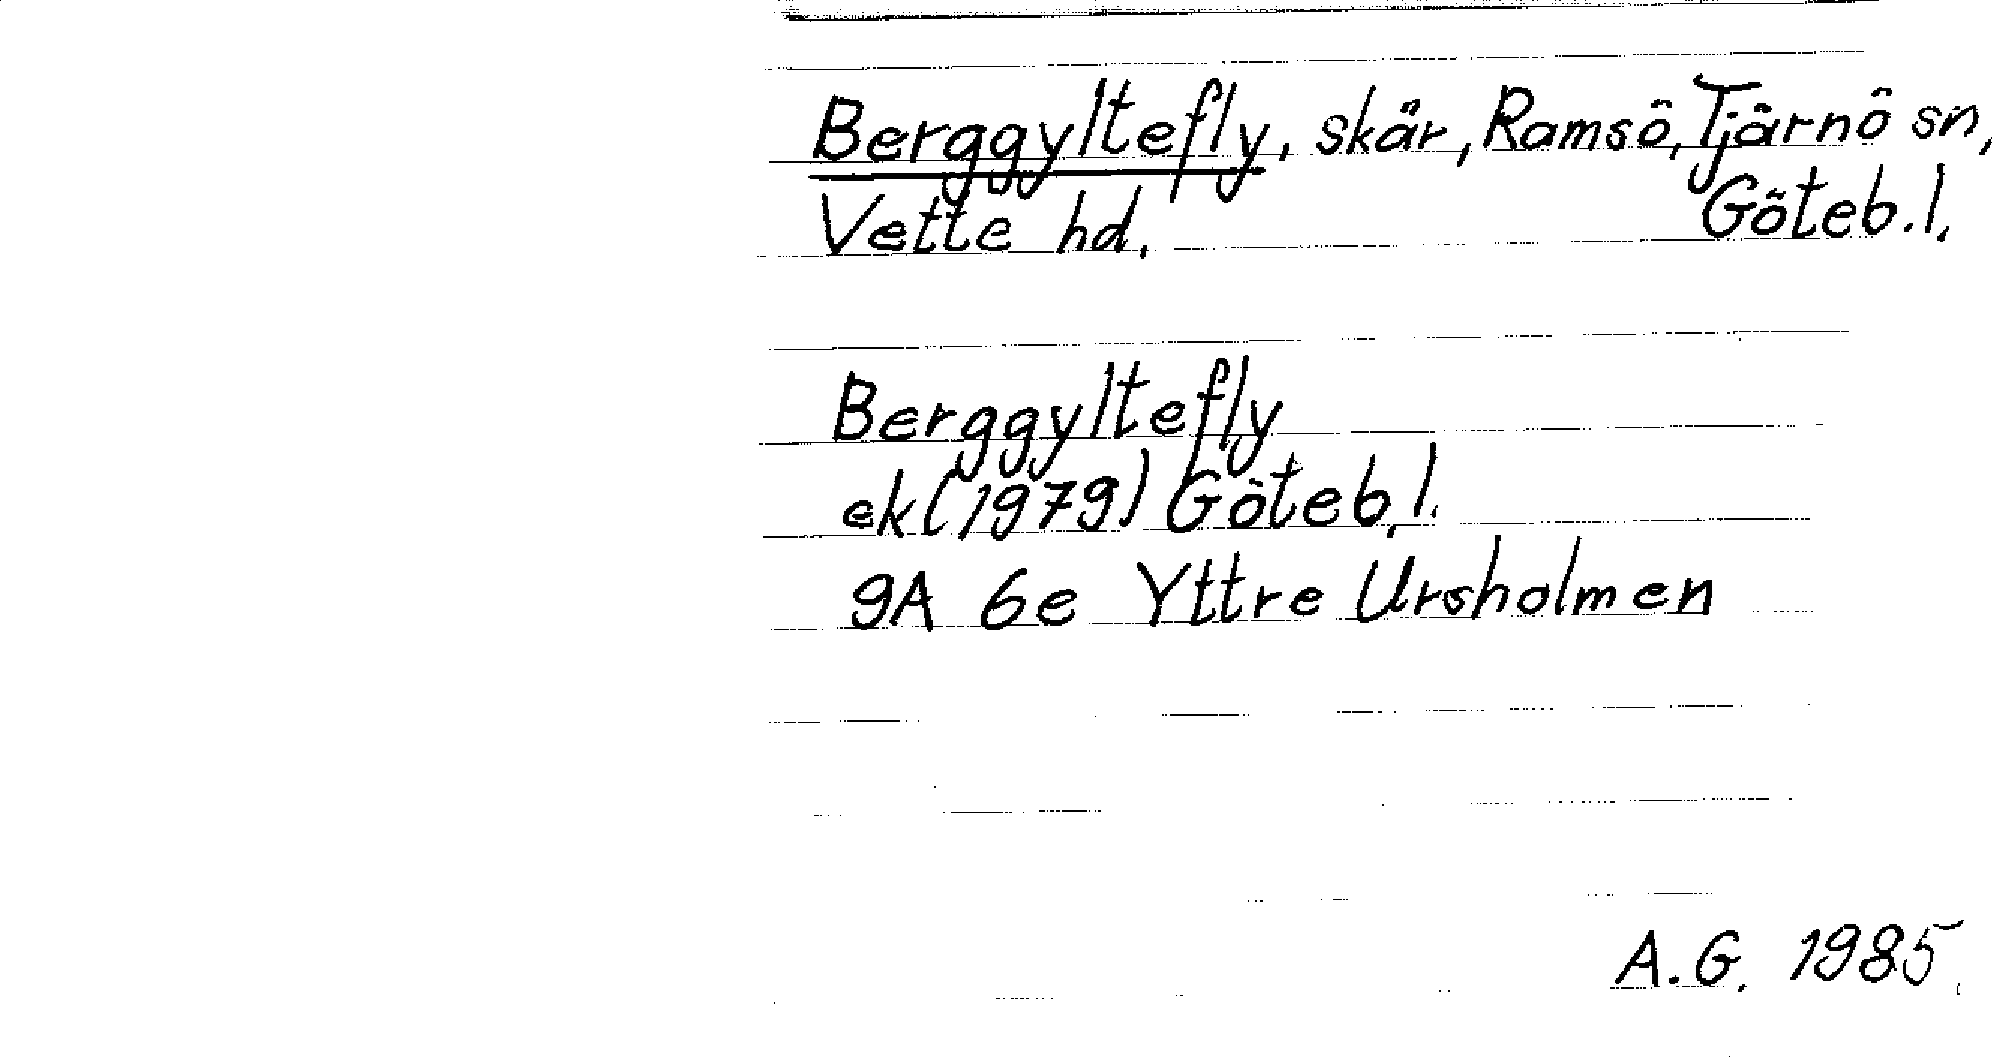 Berggyltefly, skär, Ramsö, Tjärnö sn,
Vette hd. Göteb. l.
Berggyltefly
ek (1979) Göteb. l.
9A 6e Yttre Ursholmen
A.G. 1985.